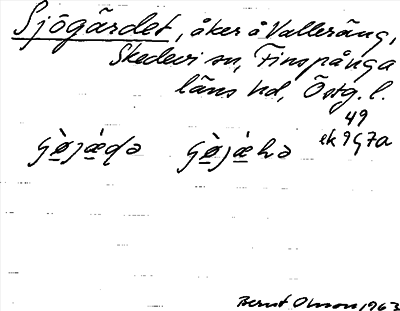 Sjögärdet, åker å Valleräng,
Skedevi sn, Finspånga
läns hd, Östg. l.
49
ek 9G7a
Bernt Olsson 1963